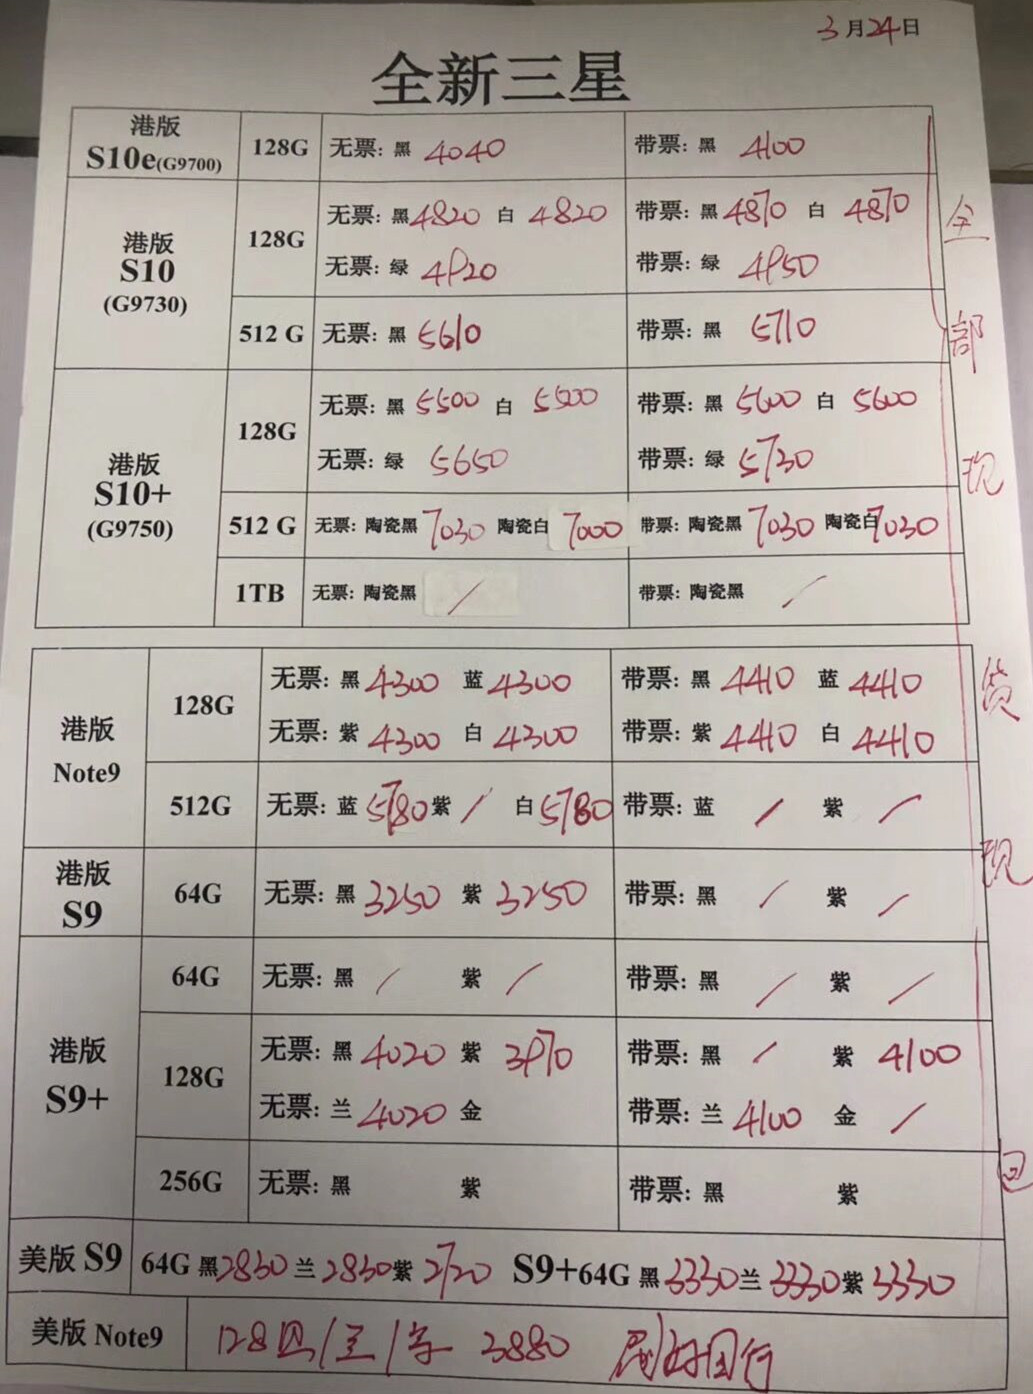 3月24日
全新三星
港版 S10e(G9700) 128G 无票: 黑 4040 带票: 黑 4100
港版 S10 (G9730) 128G 无票: 黑 4820 白 4820 带票: 黑 4870 白 4870
无票: 绿 4920 带票: 绿 4950
512 G 无票: 黑 5610 带票: 黑 5710
港版 S10+ (G9750) 128G 无票: 黑 5500 白 5500 带票: 黑 5600 白 5600
无票: 绿 5650 带票: 绿 5730
512 G 无票: 陶瓷黑 7030 陶瓷白 7000 带票: 陶瓷黑 7030 陶瓷白 7030
1TB 无票: 陶瓷黑 / 带票: 陶瓷黑 /
港版 Note9 128G 无票: 黑 4300 蓝 4300 带票: 黑 4410 蓝 4410
无票: 紫 4300 白 4300 带票: 紫 4410 白 4410
512G 无票: 蓝 5780 紫 / 白 5780 带票: 蓝 / 紫 /
港版 S9 64G 无票: 黑 3250 紫 3250 带票: 黑 / 紫 /
港版 S9+ 64G 无票: 黑 / 紫 / 带票: 黑 / 紫 /
128G 无票: 黑 4020 紫 3970 带票: 黑 / 紫 4100
无票: 兰 4020 金 带票: 兰 4100 金 /
256G 无票: 黑 紫 带票: 黑 紫
美版 S9 64G 黑 2830 兰 2830 紫 2720 S9+64G 黑 3330 兰 3330 紫 3330
美版 Note9 128 3880 刷好国行
全部现货现